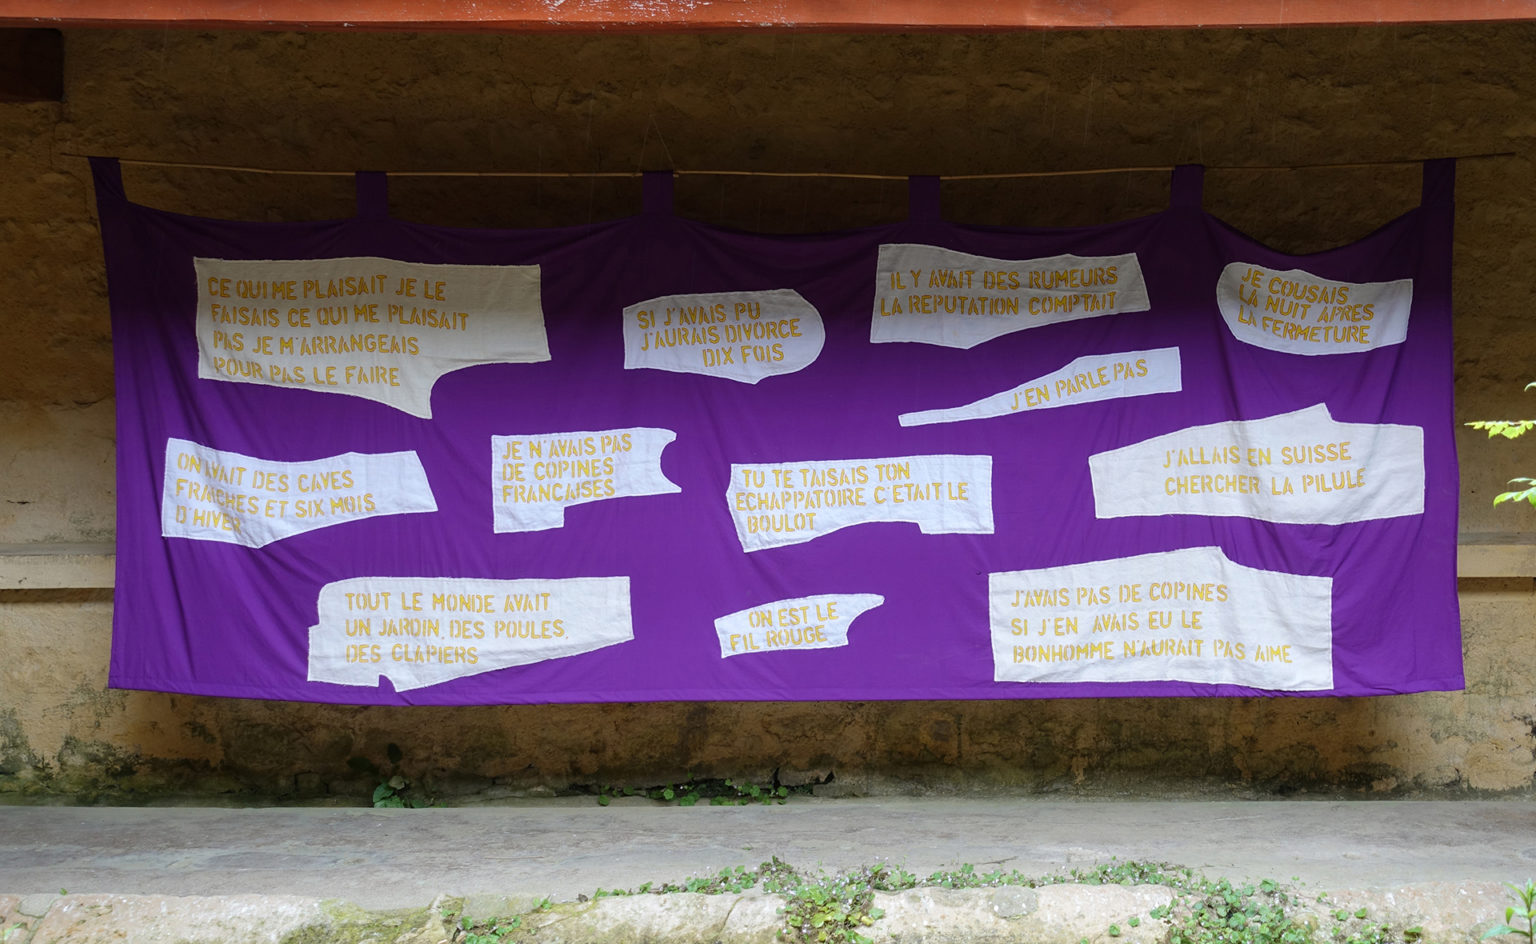 CE QUI ME PLAISAIT JE LE
FAISAIS CE QUI ME PLAISAIT
PAS JE M'ARRANGEAIS
POUR PAS LE FAIRE
SI J'AVAIS PU
J'AURAIS DIVORCE
DIX FOIS
IL Y AVAIT DES RUMEURS
LA REPUTATION COMPTAIT
JE COUSAIS
LA NUIT APRES
LA FERMETURE
J'EN PARLE PAS
ON AVAIT DES CAVES
FRAICHES ET SIX MOIS
D'HIVER
JE N'AVAIS PAS
DE COPINES
FRANCAISES
TU TE TAISAIS TON
ECHAPPATOIRE C'ETAIT LE
BOULOT
J'ALLAIS EN SUISSE
CHERCHER LA PILULE
TOUT LE MONDE AVAIT
UN JARDIN, DES POULES,
DES CLAPIERS
ON EST LE
FIL ROUGE
J'AVAIS PAS DE COPINES
SI J'EN AVAIS EU LE
BONHOMME N'AURAIT PAS AIME